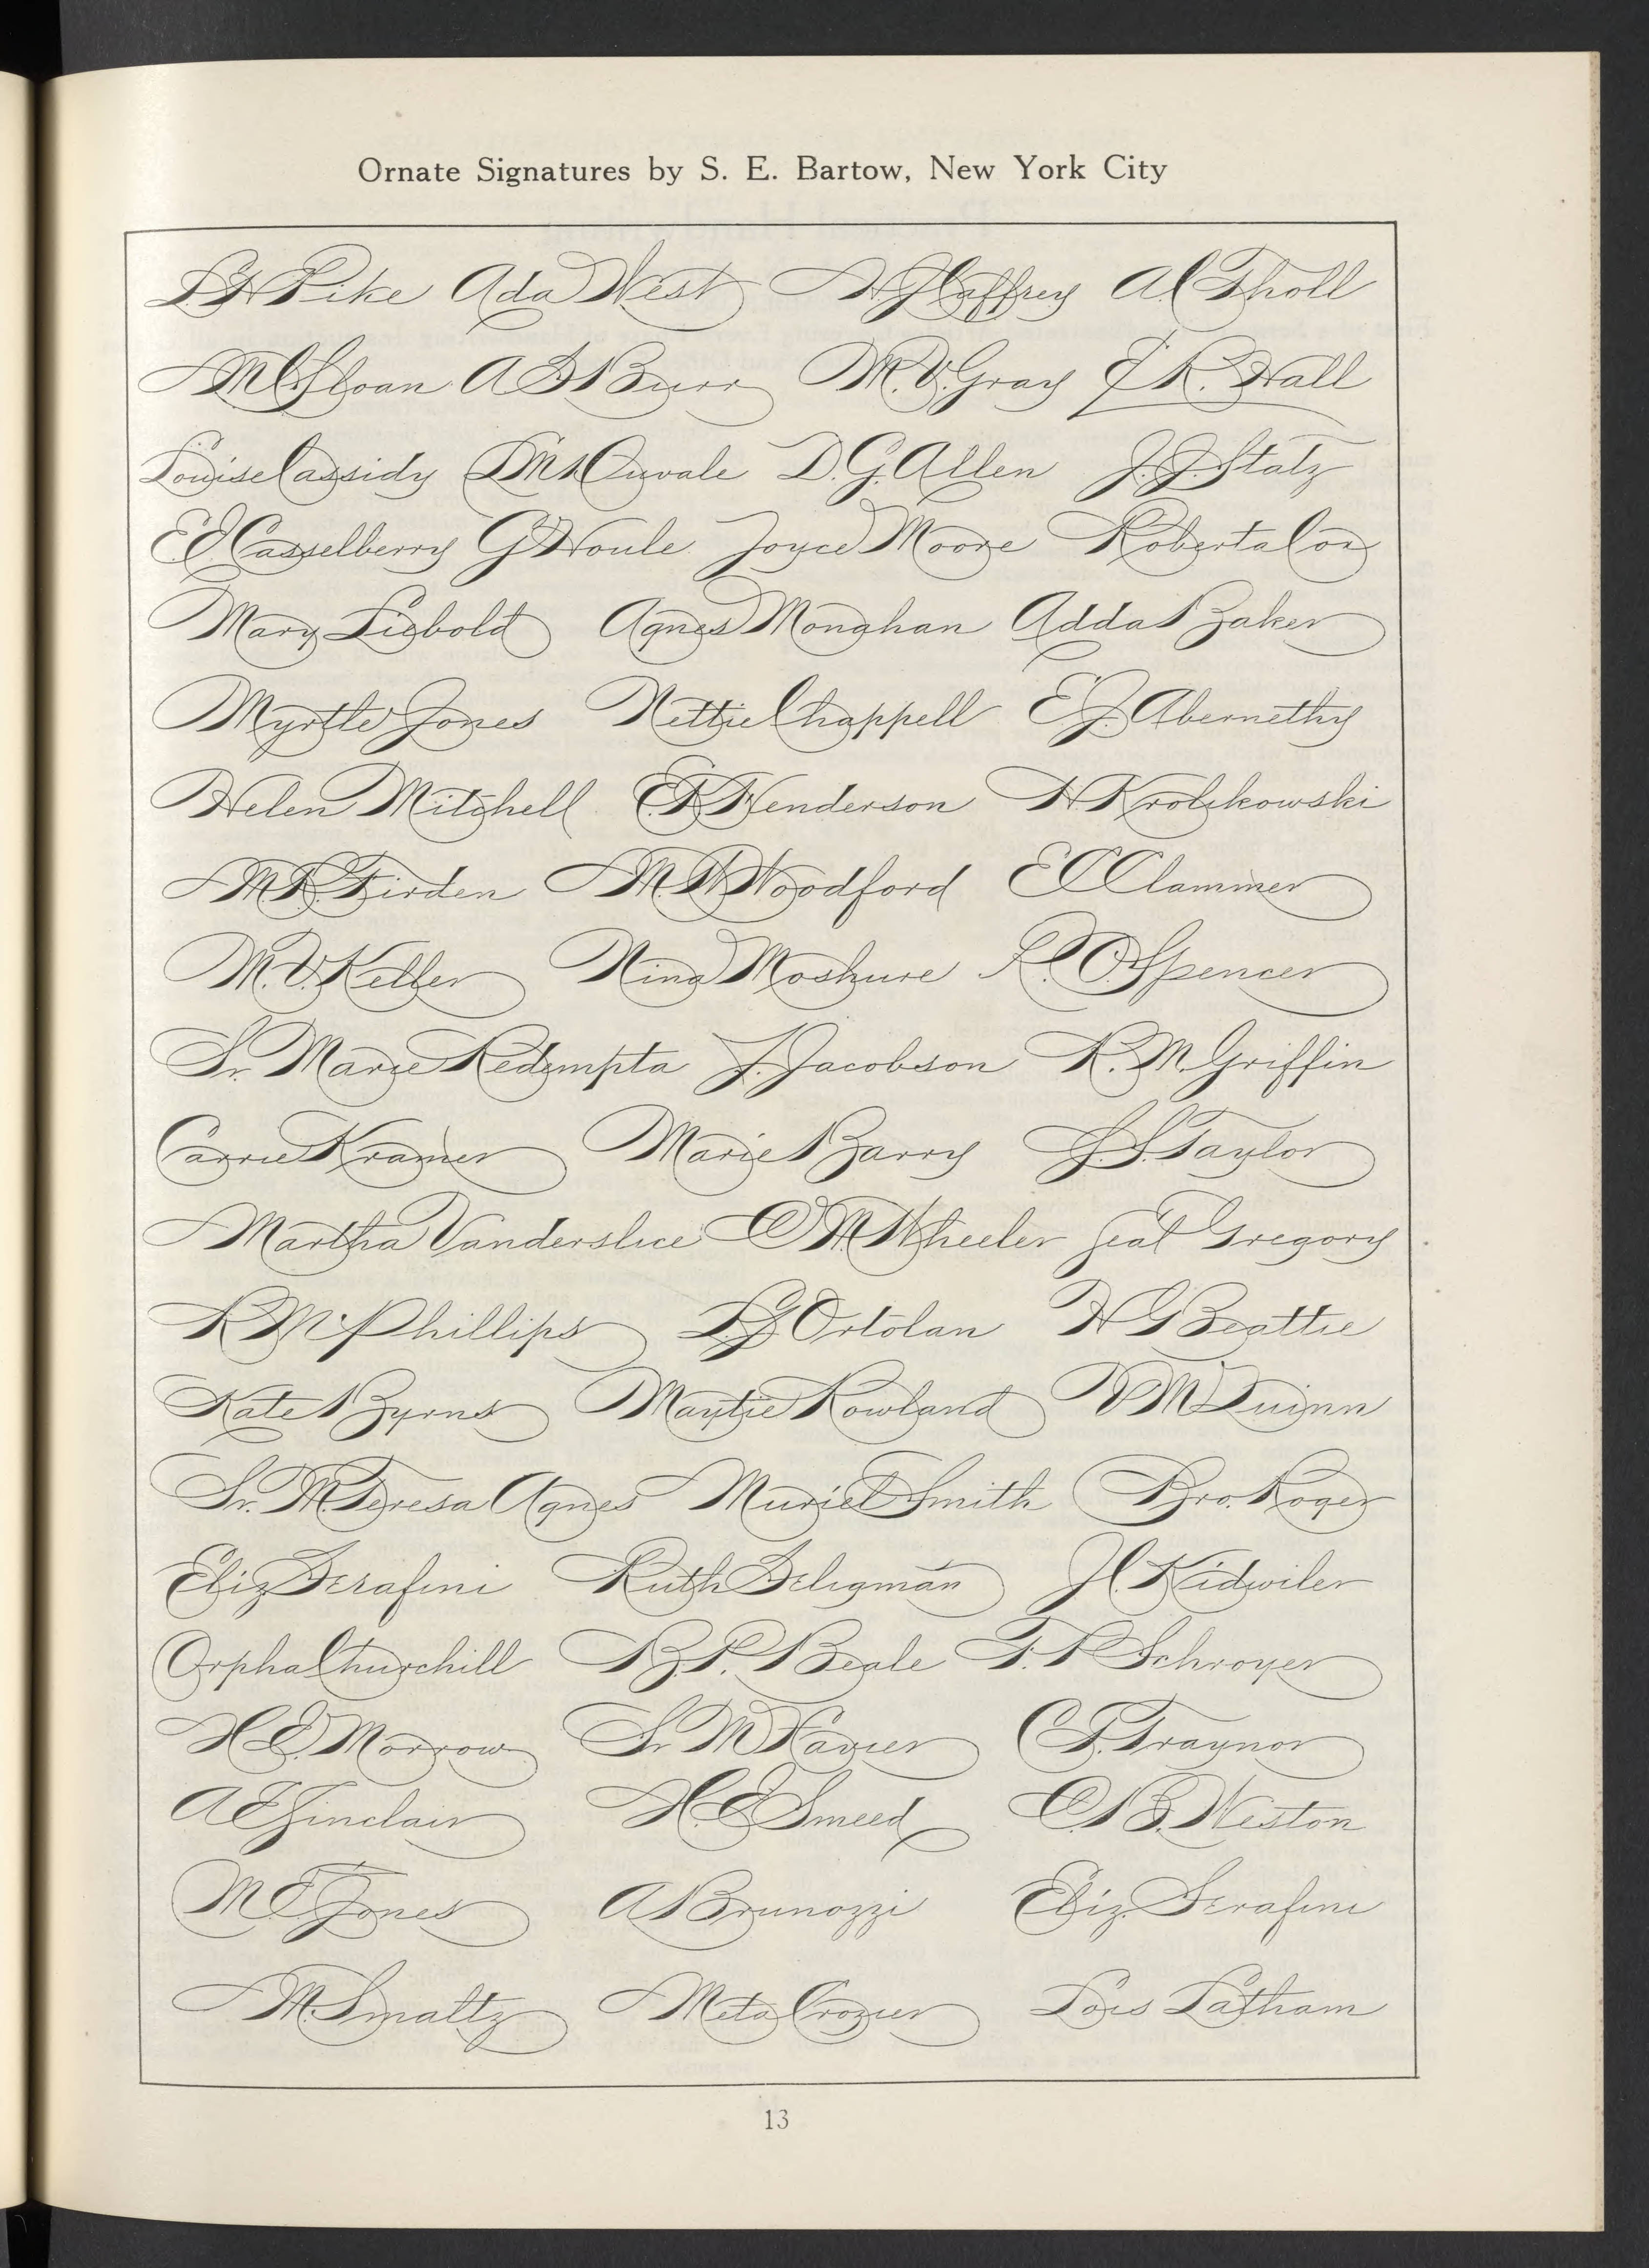 Ornate Signatures by S. E. Bartow, New York City
L. H. Pike Ada West H. J. Caffrey A. C. Tholl
M. C. Sloan A. S. Burr M. V. Gray E. R. Hall
Louise Cassidy D. G. Allen J. J. Statz
E. E. Casselberry G. Houle Joyce Moore Roberta Cox
Mary Liebold Agnes Monahan Adda Baker
Myrtle Jones Nettie Chappell E. J. Abernethy
Helen Mitchell E. R. Henderson H. Krolikowski
M. R. Firden M. W. Woodford E. C. Clammer
M. V. Keller Nina Moshure L. P. O. Spencer
Sr. Marie Redempta J. Jacobson R. M. Griffin
Carrie Kramer Marie Barry S. S. Taylor
Martha Vanderslice C. M. Wheeler Geal Gregory
R. Mc Phillips L. G. Ortolan H G Beattie
Kate Byrns Maytie Rowland V M Quinn
Sr. M. Teresa Agnes Muriel Smith Bro. Roger
Eliz Serafini Ruth Seligman J. C. Kidwiler
Orpha Churchill B. P. Beale F. P. Schroyer
H. E. Morrow Sr M Xavier C. F. Traynor
A E Sinclair H. E. Smeed C. B. Weston
M. E. Jones A Brunozzi Eliz. Serafini
M. Smaltz Meta Crozier Lois Latham
13